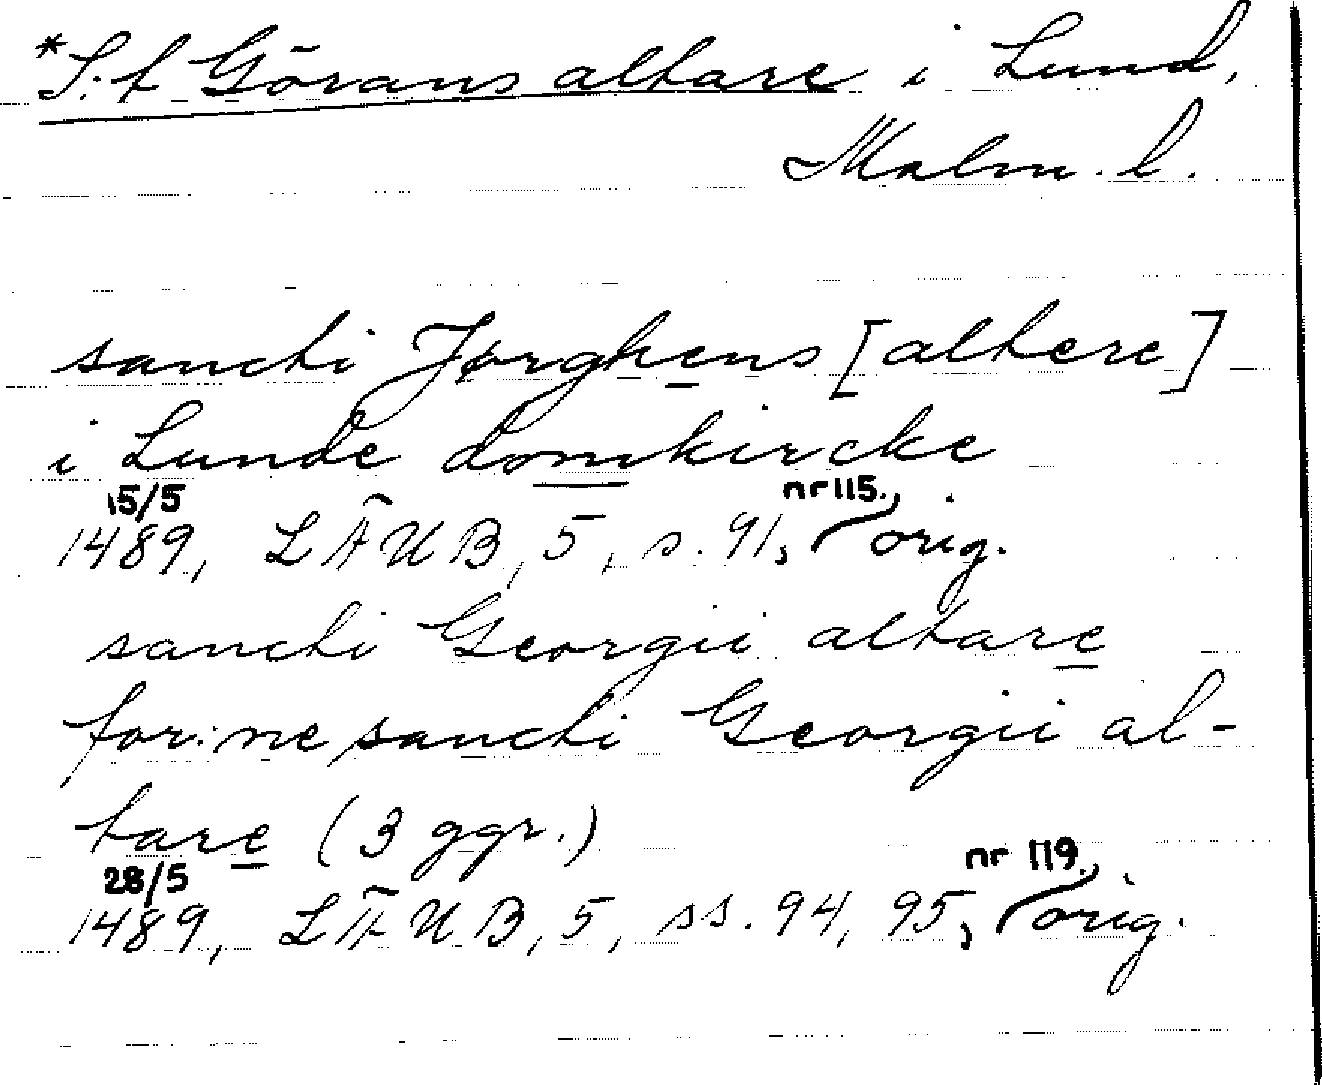 *S:t Görans altare i Lund,
Malm. l.
sancti Jørghens [altere]
i Lunde domkircke
15/5 1489, LÄUB, 5, s. 91, nr 115., orig.
sancti Georgii altare
for:ne sancti Georgii al-
tare (3 ggr.)
28/5 1489, LÄUB, 5, ss. 94, 95, nr 119., orig.